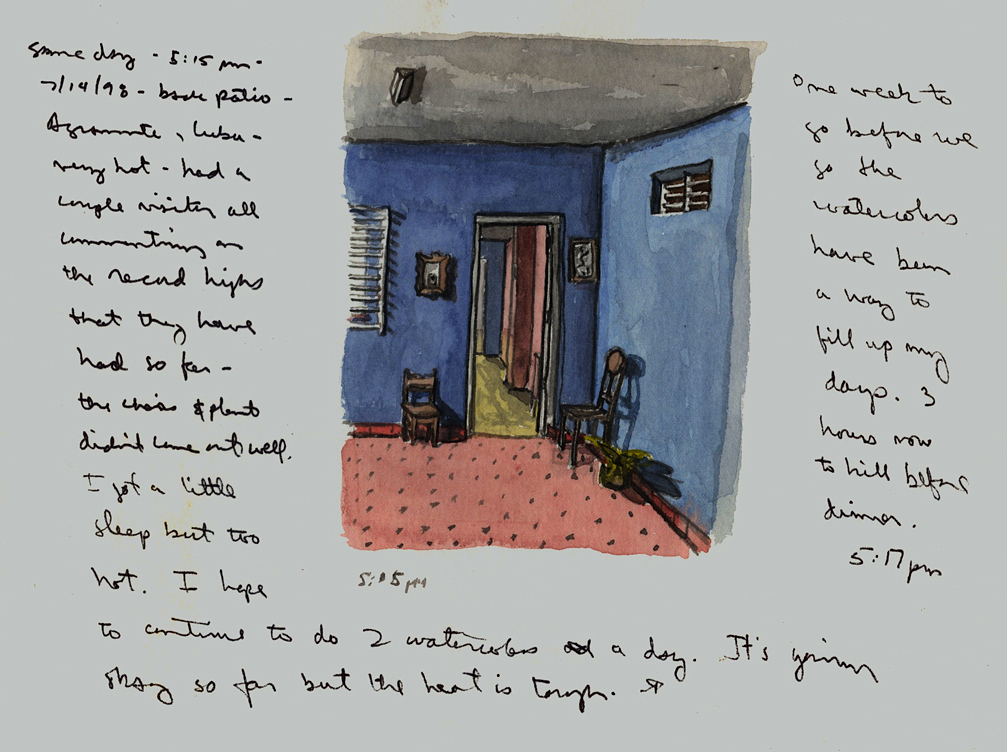 same day - 5:15 pm -
7/14/98 - back patio -
Agramonte, Cuba -
very hot - had a
couple visitors all
commenting on
the record highs
that they have
had so far -
the chairs & plants
didn't come out well.
I got a little
sleep but too
hot. I hope
to continue to do 2 watercolors a day. It's going
okay so far but the heat is tough.
5:15 pm
One week to
go before we
go the
watercolors
have been
a way to
fill up my
days. 3
hours now
to kill before
dinner.
5:17 pm